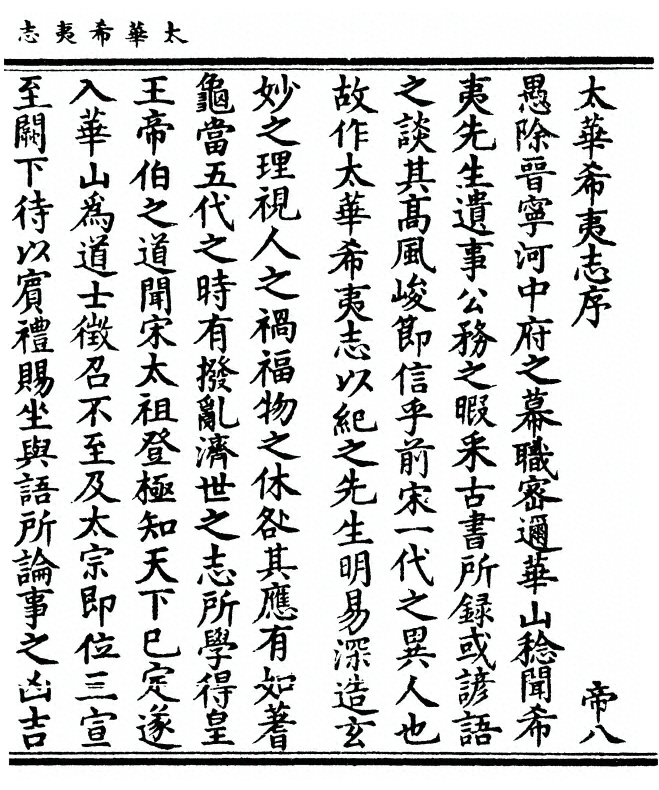 太華希夷志
太華希夷志序 帝八
愚除晉寧河中府之幕職密邇華山稔聞希
夷先生遺事公務之暇釆古書所録或諺語
之談其髙風峻節信乎前宋一代之異人也
故作太華希夷志以紀之先生明易深造玄
妙之理視人之禍福物之休咎其應有如蓍
龜當五代之時有撥亂濟世之志所學得皇
王帝伯之道聞宋太祖登極知天下已定遂
入華山爲道士徵召不至及太宗即位三宣
至闕下待以賔禮賜坐與語所論事之凶吉